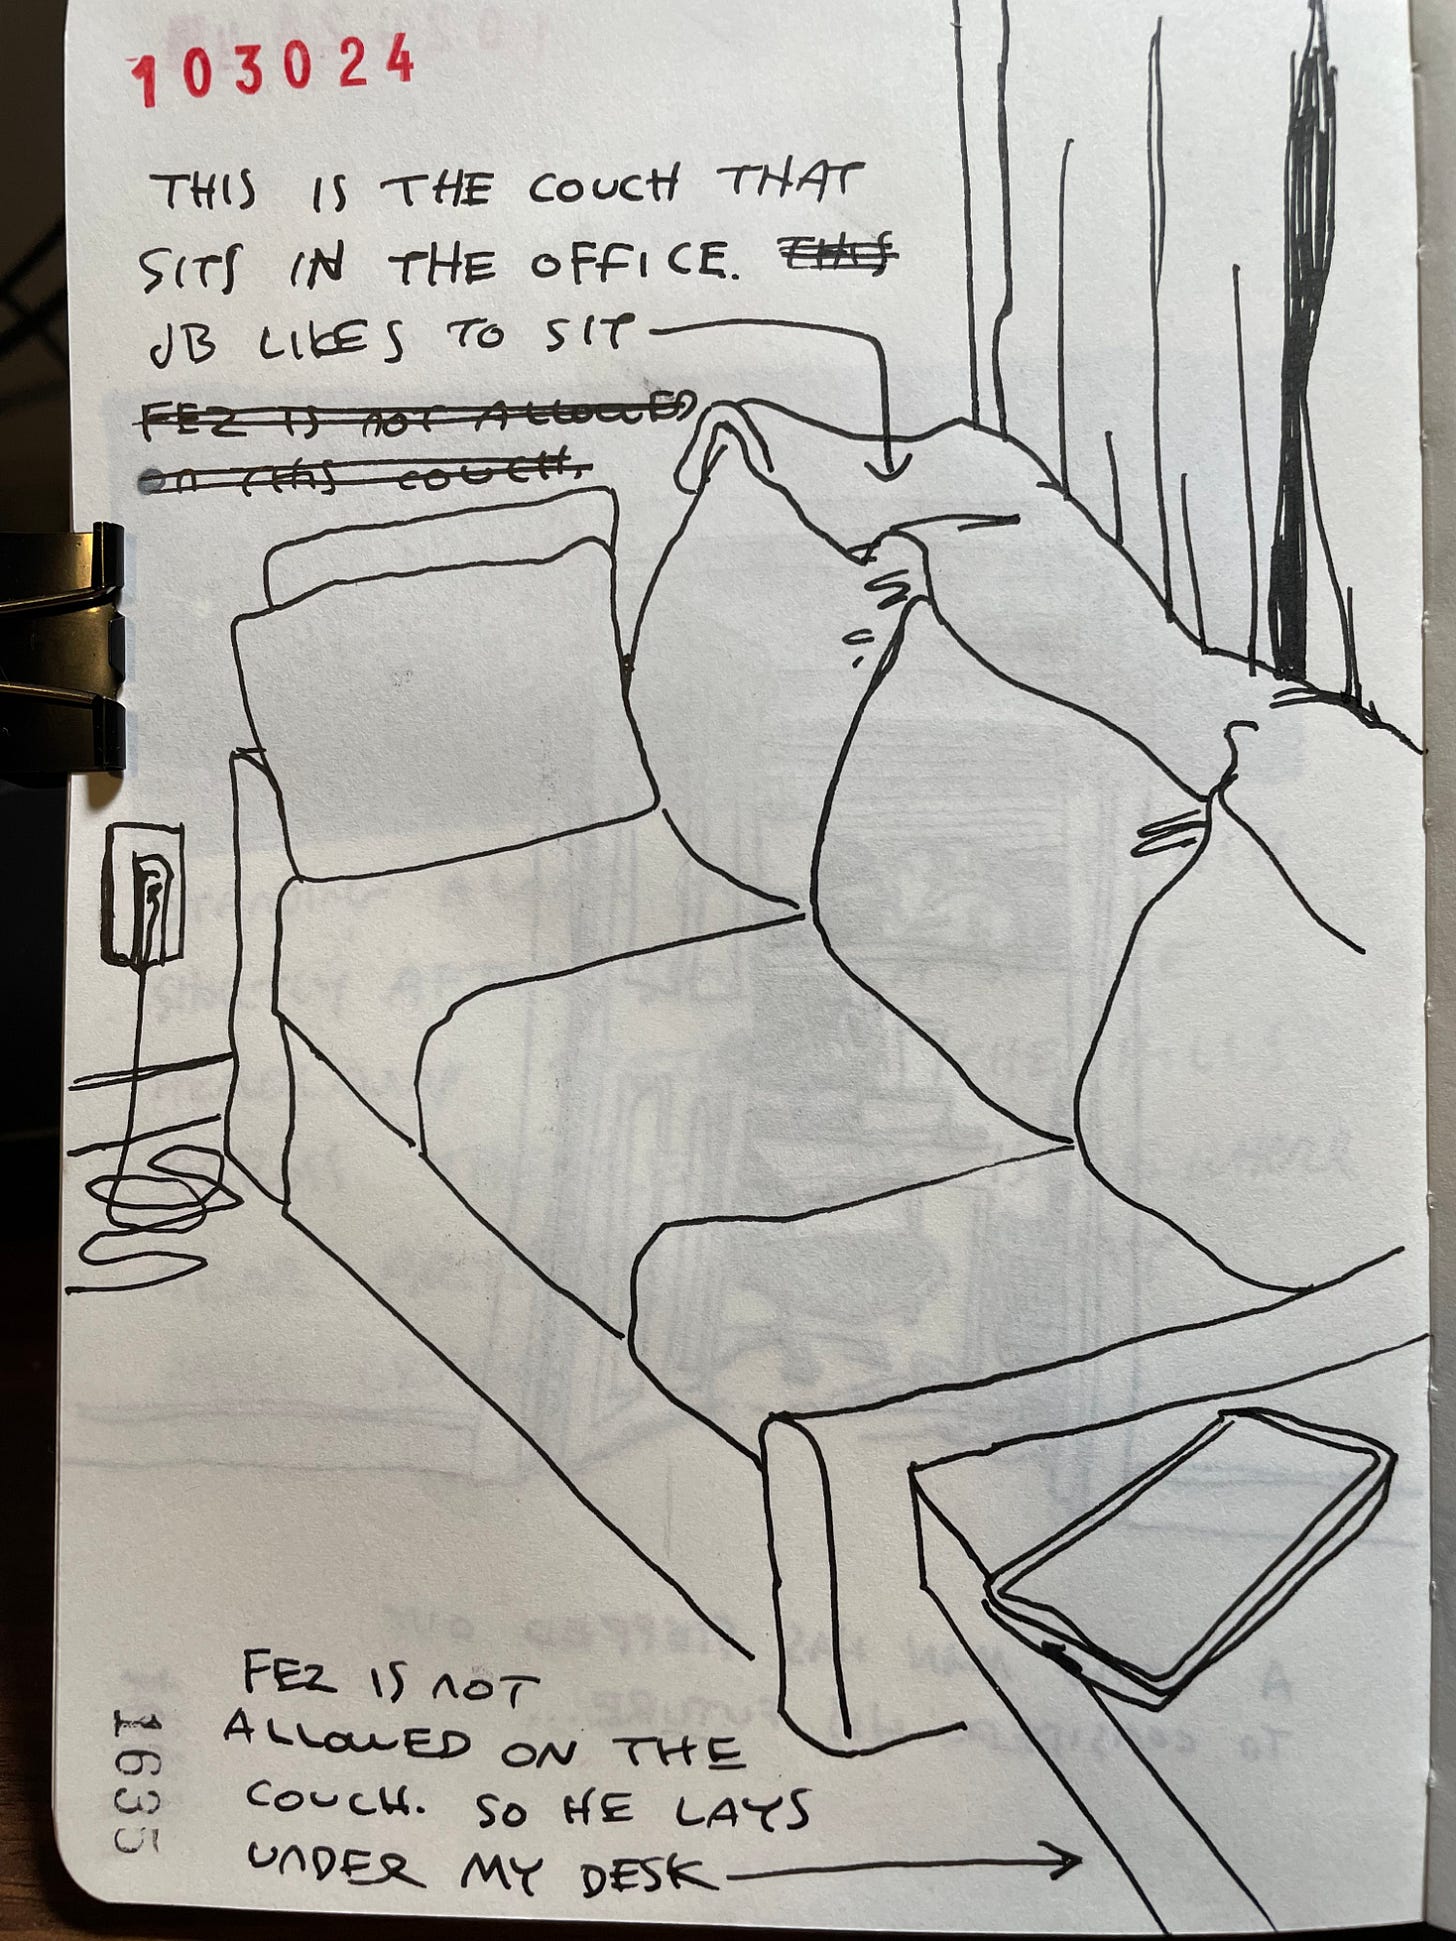 103024
THIS IS THE COUCH THAT
SITS IN THE OFFICE. THIS
JB LIKES TO SIT
FEZ IS NOT ALLOWED
ON THIS COUCH.
FEZ IS NOT
ALLOWED ON THE
COUCH. SO HE LAYS
UNDER MY DESK
11635